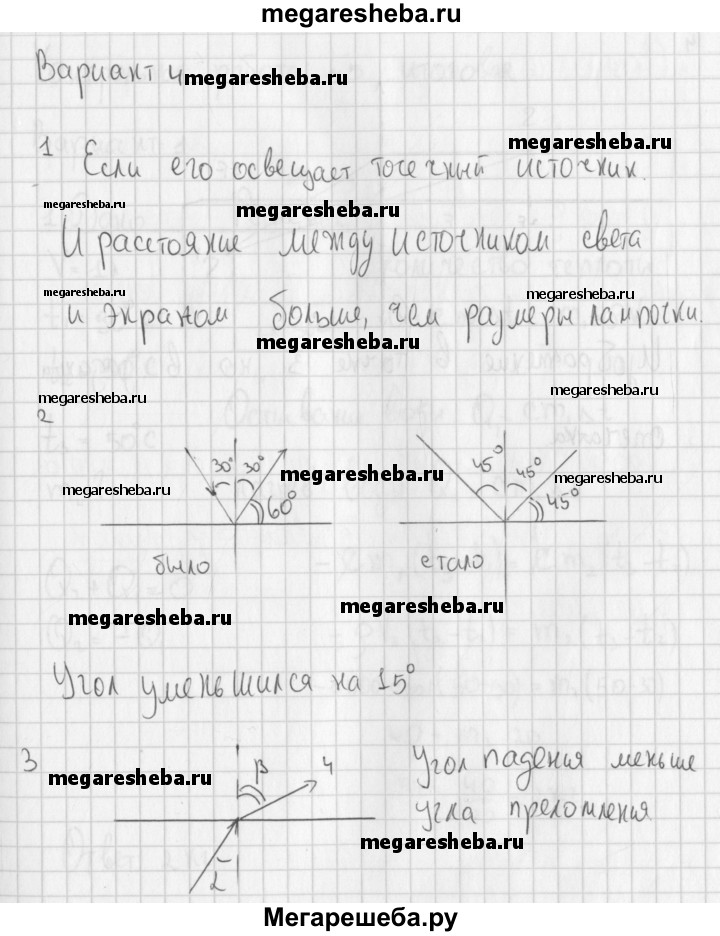 megaresheba.ru
Вариант 4 megaresheba.ru
megaresheba.ru
1 Если его освещает точечный источник.
megaresheba.ru megaresheba.ru
И расстояние между источником света
megaresheba.ru megaresheba.ru
и экраном больше, чем размеры лампочки.
megaresheba.ru
megaresheba.ru megaresheba.ru
2
30° 30° 45° 45°
megaresheba.ru megaresheba.ru megaresheba.ru
60° 45°
было стало
megaresheba.ru megaresheba.ru
Угол уменьшился на 15°
3 β 4 Угол падения меньше
megaresheba.ru
угла преломления
megaresheba.ru
α
Мегарешеба.ру